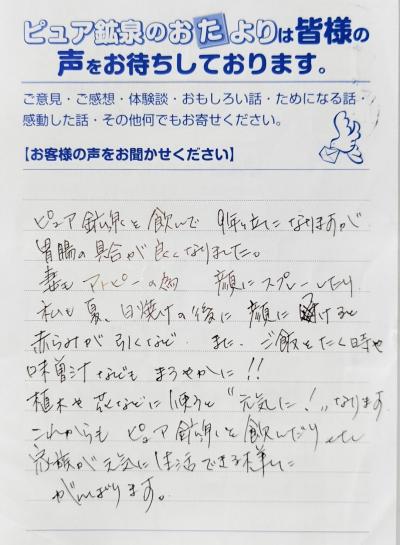 ピュア鉱泉のおたよりは皆様の
声をお待ちしております。
ご意見・ご感想・体験談・おもしろい話・ためになる話・
感動した話・その他何でもお寄せください。
【お客様の声をお聞かせください】
ピュア鉱泉を飲んで 9年位になりますが
胃腸の具合が良くなりました。
妻もアトピーの為 顔にスプレーしたり
私も夏、日焼けの後に顔に けると
赤らみが引くなど また、ご飯をたく時や
味噌汁などもまろやかに!!
植木や花などに使うと“元気に!”なります
これからも ピュア鉱泉を飲んだり etc
家族が元気に生活できる様に
がんばります。